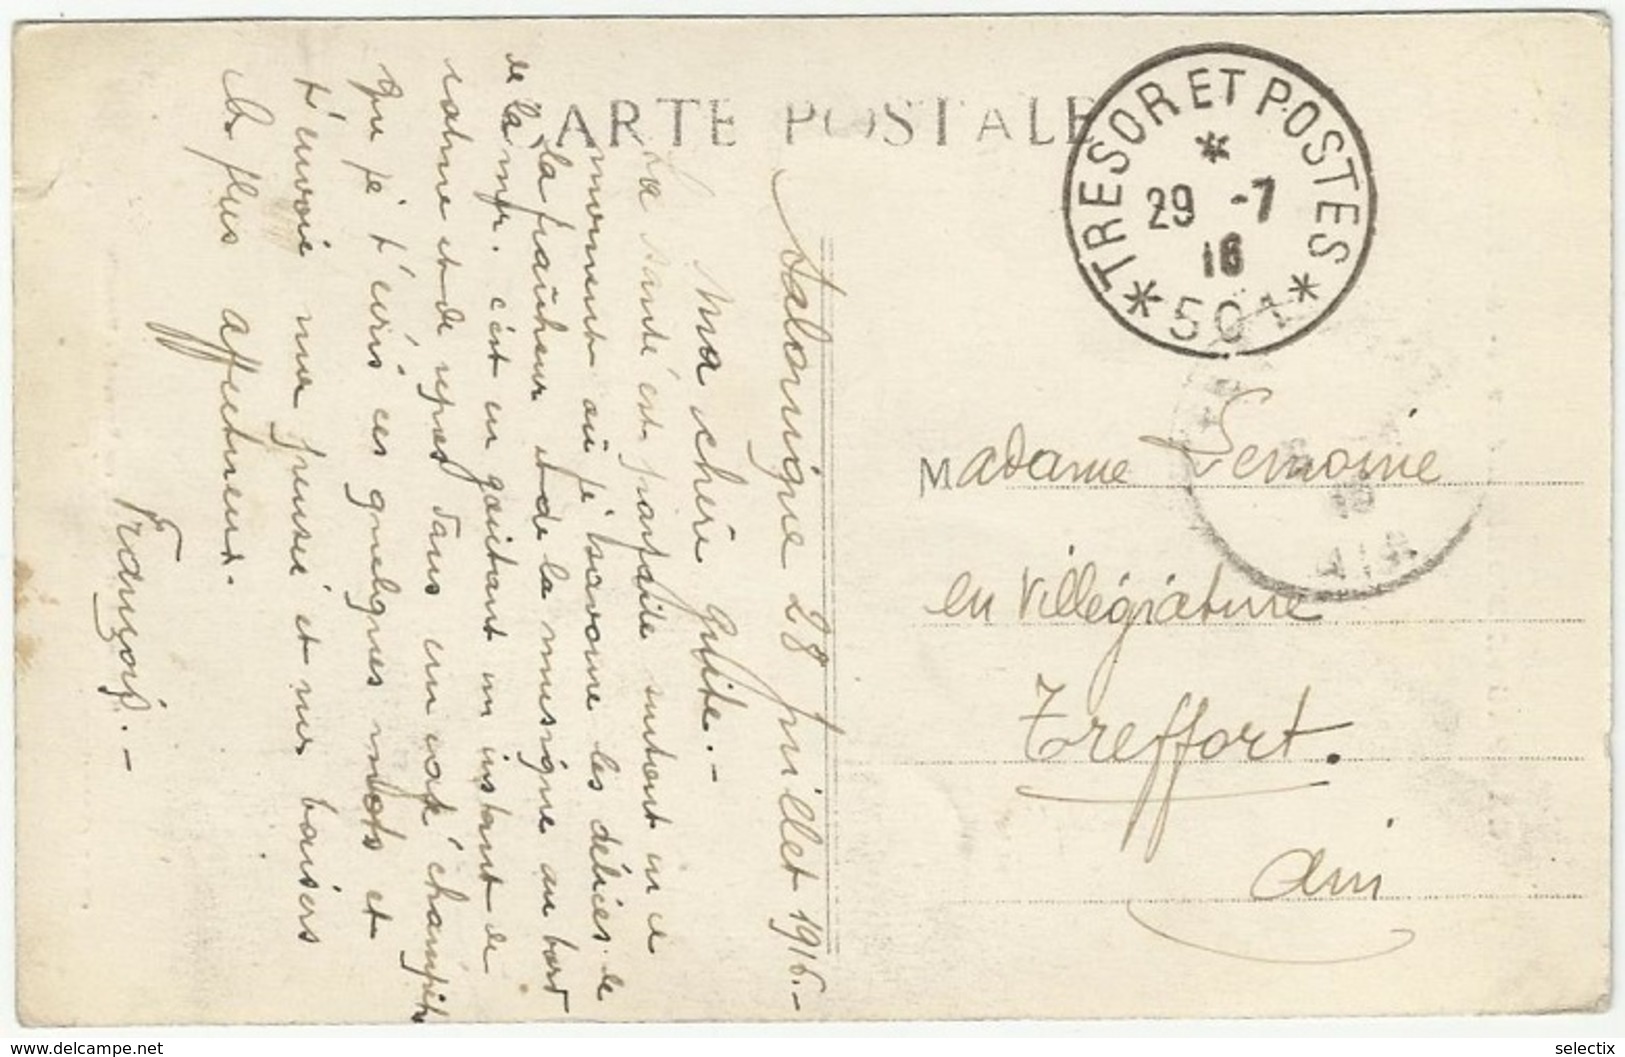 CARTE POSTALE
TRESOR ET POSTES
*
29 -7
16
* 501 *
AIN
Salonique 28 juillet 1916.-
Ma chère Guite.-
La santé est parfaite surtout en ce
moment où je savoure les délices de
la fraîcheur et de la musique au bord
de la mer. c'est en goûtant un instant de
calme et de repos dans un café champêtre
que je t'écris ces quelques mots et
t'envoie ma pensée et mes baisers
les plus affectueux.
François.-
Madame Lemoine
en villégiature
Treffort.
Ain
www.delcampe.net
selectix